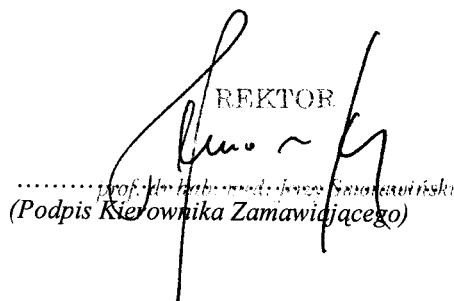 REKTOR
prof. dr hab. med. Jerzy Smorawiński
(Podpis Kierownika Zamawiającego)